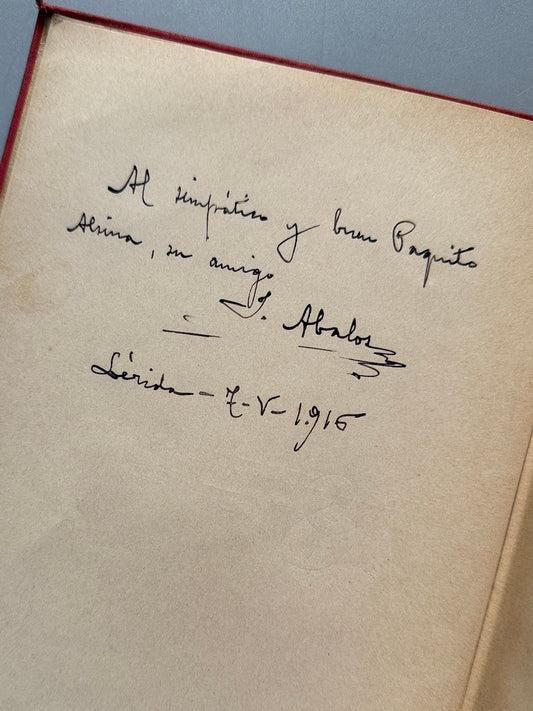 Al simpático y buen Paquito
Alsina, su amigo
J. Abalos
Lérida - 7-V-1.916